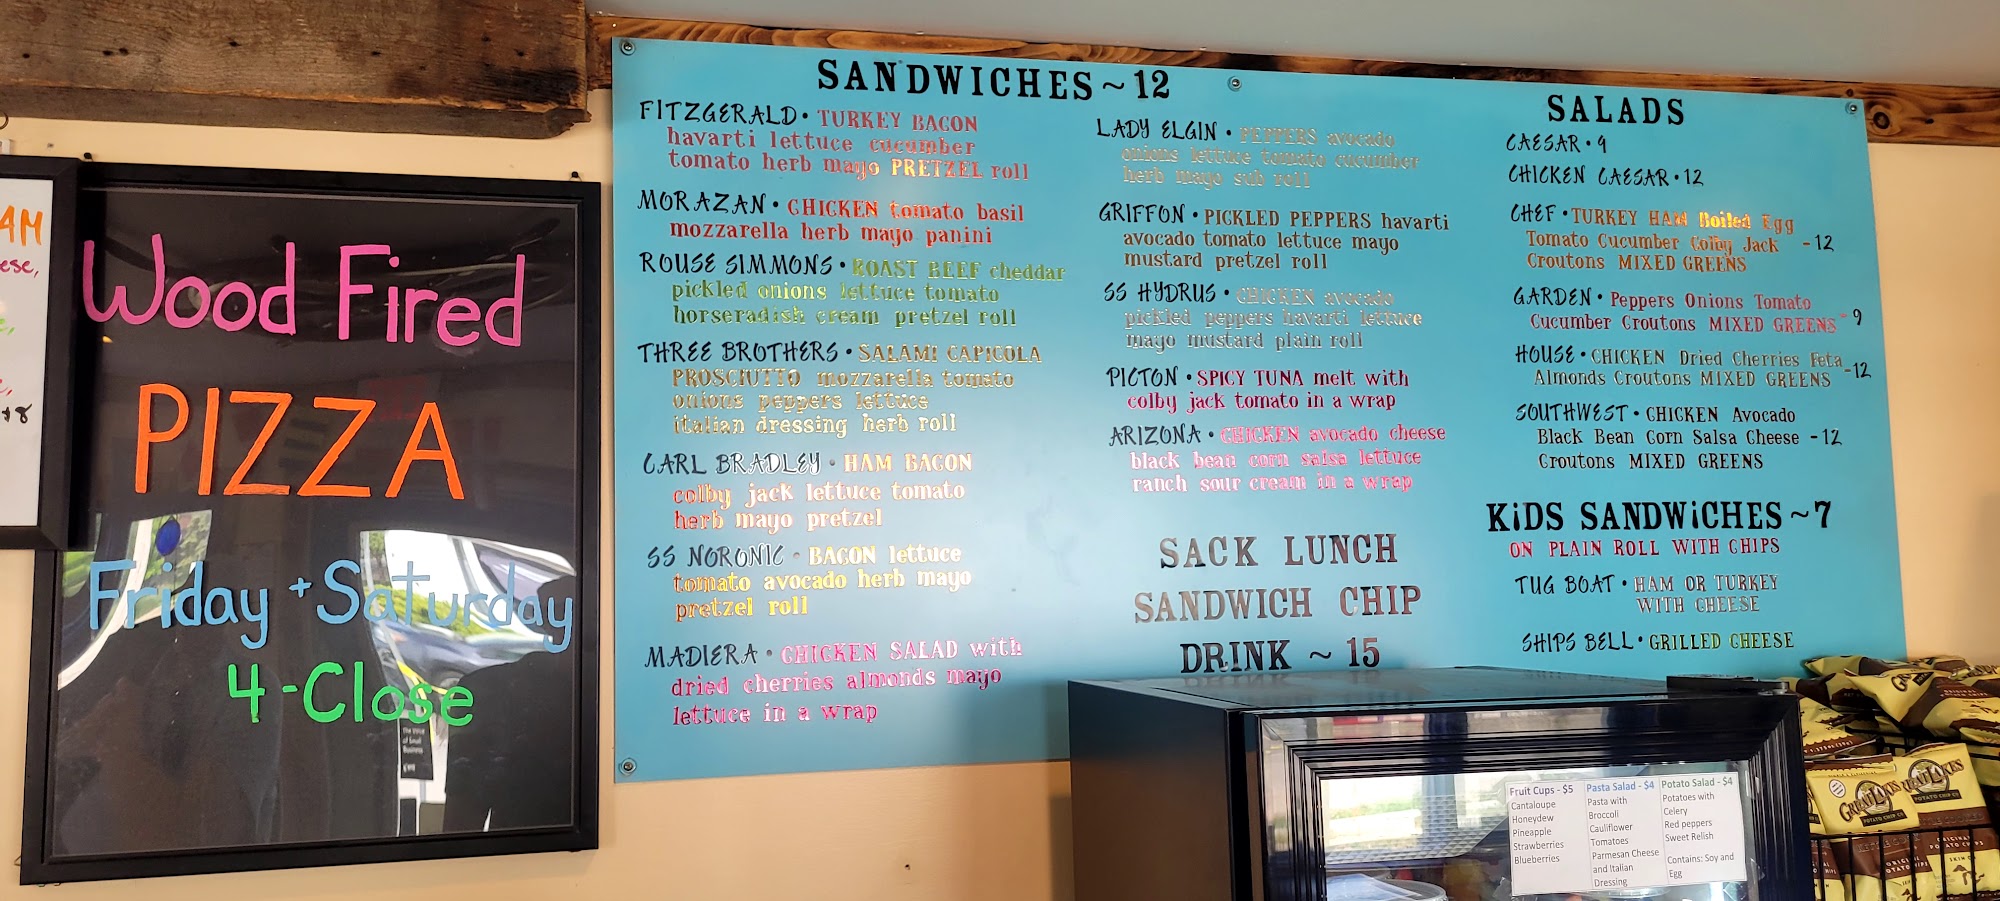 AM
ese,
+8
Wood Fired
PIZZA
Friday + Saturday
4-Close
SANDWICHES ~ 12
FITZGERALD • TURKEY BACON
havarti lettuce cucumber
tomato herb mayo PRETZEL roll
MORAZAN • CHICKEN tomato basil
mozzarella herb mayo panini
ROUSE SIMMONS • ROAST BEEF cheddar
pickled onions lettuce tomato
horseradish cream pretzel roll
THREE BROTHERS • SALAMI CAPICOLA
PROSCIUTTO mozzarella tomato
onions peppers lettuce
italian dressing herb roll
CARL BRADLEY • HAM BACON
colby jack lettuce tomato
herb mayo pretzel
SS NORONIC • BACON lettuce
tomato avocado herb mayo
pretzel roll
MADIERA • CHICKEN SALAD with
dried cherries almonds mayo
lettuce in a wrap
LADY ELGIN • PEPPERS avocado
onions lettuce tomato cucumber
herb mayo sub roll
GRIFFON • PICKLED PEPPERS havarti
avocado tomato lettuce mayo
mustard pretzel roll
SS HYDRUS • CHICKEN avocado
pickled peppers havarti lettuce
mayo mustard plain roll
PICTON • SPICY TUNA melt with
colby jack tomato in a wrap
ARIZONA • CHICKEN avocado cheese
black bean corn salsa lettuce
ranch sour cream in a wrap
SACK LUNCH
SANDWICH CHIP
DRINK ~ 15
SALADS
CAESAR • 9
CHICKEN CAESAR • 12
CHEF • TURKEY HAM Boiled Egg
Tomato Cucumber Colby Jack - 12
Croutons MIXED GREENS
GARDEN • Peppers Onions Tomato
Cucumber Croutons MIXED GREENS - 9
HOUSE • CHICKEN Dried Cherries Feta
Almonds Croutons MIXED GREENS - 12
SOUTHWEST • CHICKEN Avocado
Black Bean Corn Salsa Cheese - 12
Croutons MIXED GREENS
KiDS SANDWiCHES ~ 7
ON PLAIN ROLL WITH CHIPS
TUG BOAT • HAM OR TURKEY
WITH CHEESE
SHIPS BELL • GRILLED CHEESE
Fruit Cups - $5
Cantaloupe
Honeydew
Pineapple
Strawberries
Blueberries
Pasta Salad - $4
Pasta with
Broccoli
Cauliflower
Tomatoes
Parmesan Cheese
and Italian
Dressing
Potato Salad - $4
Potatoes with
Celery
Red peppers
Sweet Relish
Contains: Soy and
Egg
GREAT LAKES
POTATO CHIP CO
GREAT LAKES
POTATO CHIP CO
ORIGINAL